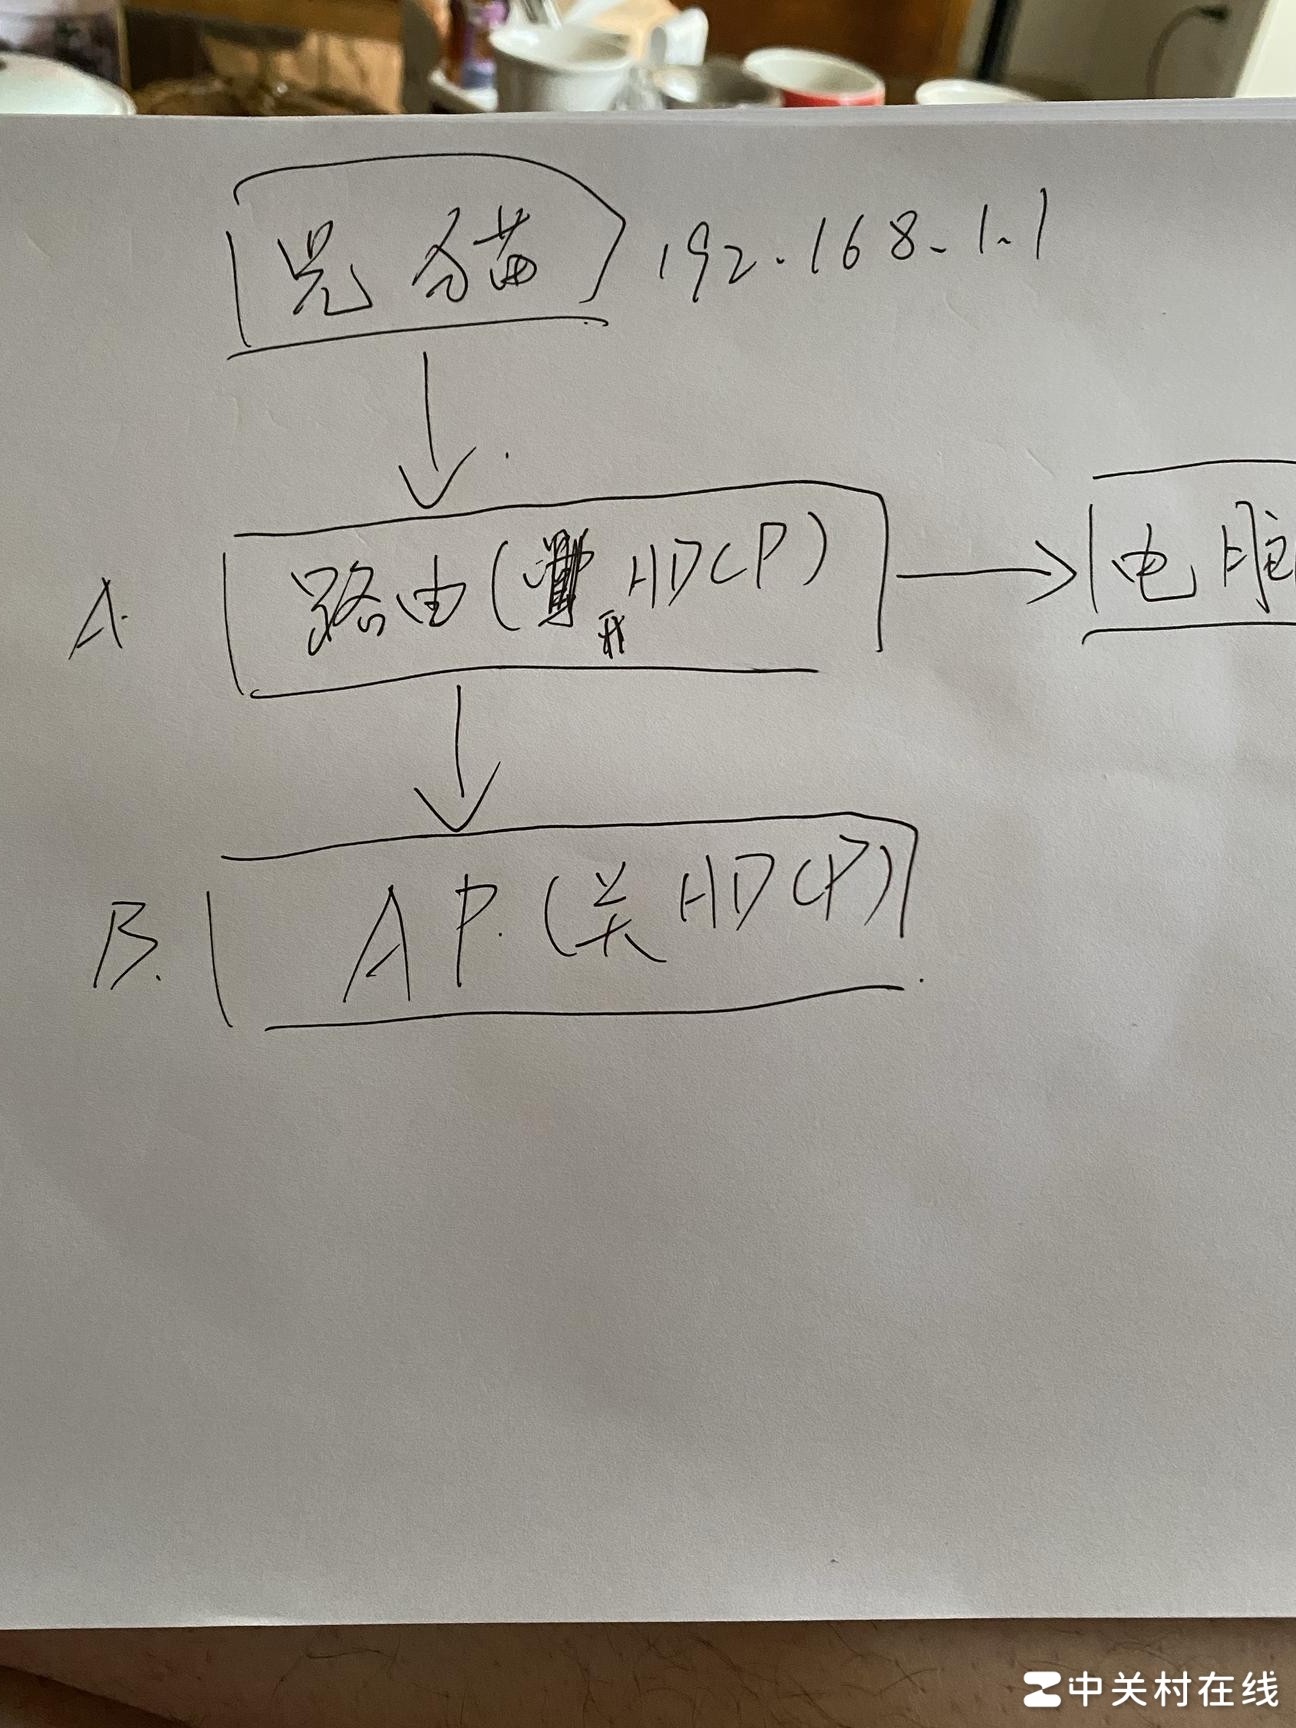 光猫 192.168.1.1
A. 路由(开HDCP) 电脑
B. AP.(关HDCP)
中关村在线